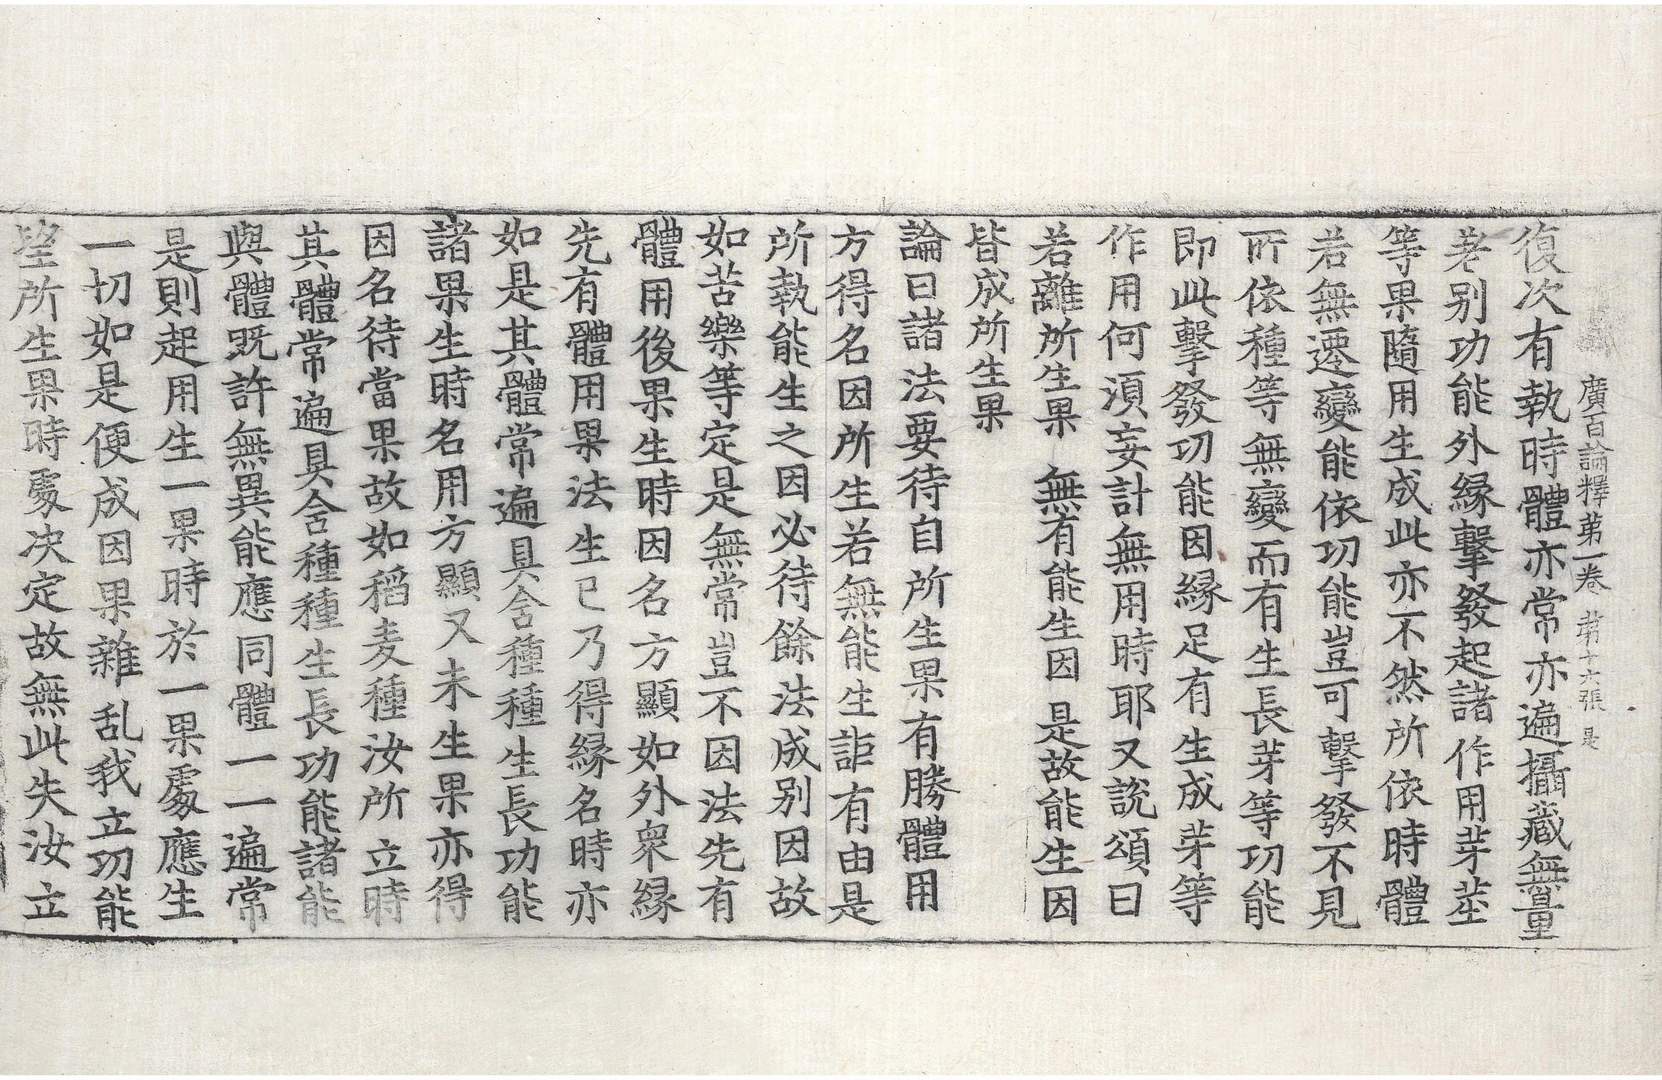 廣百論釋苐一卷 苐十六張 是
復次有執時體亦常亦遍攝藏無量
差别功能外縁擊發起諸作用芽莖
等果隨用生成此亦不然所依時體
若無遷變能依功能豈可擊發不見
所依種等無變而有生長芽等功能
即此擊發功能因縁足有生成芽等
作用何湏妄計無用時耶又說頌曰
若離所生果 無有能生因 是故能生因
皆成所生果
論曰諸法要待自所生果有勝體用
方得名因所生若無能生詎有由是
所執能生之因必待餘法成别因故
如苦樂等定是無常豈不因法先有
體用後果生時因名方顯如外衆縁
先有體用果法生已乃得縁名時亦
如是其體常遍具含種種生長功能
諸果生時名用方顯又未生果亦得
因名待當果故如稻麦種汝所立時
其體常遍具含種種生長功能諸能
與體既許無異能應同體一一遍常
是則起用生一果時於一果處應生
一切如是便成因果雜乱我立功能
望所生果時處决定故無此失汝立